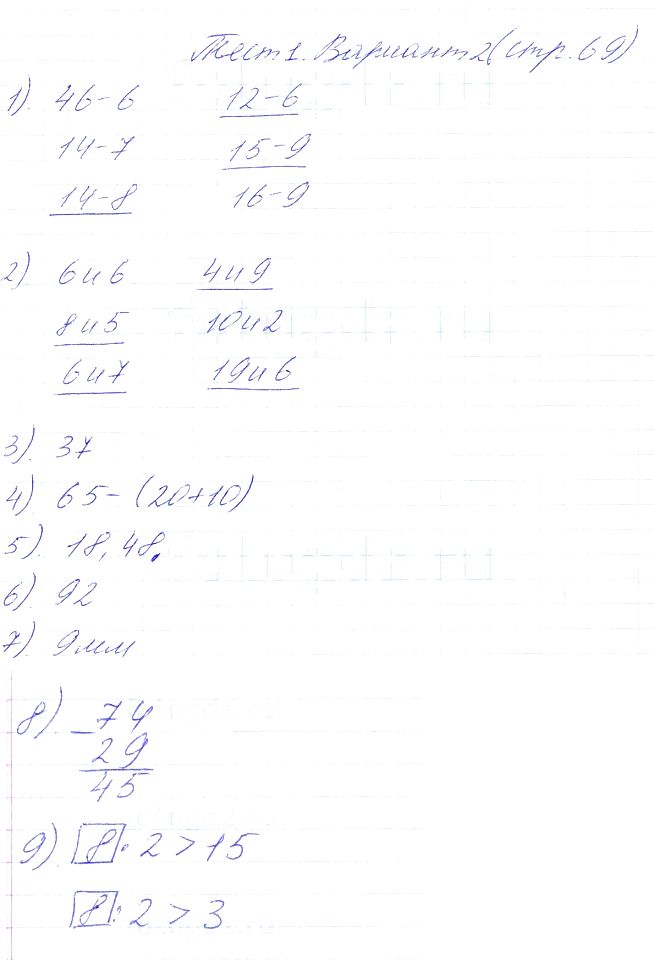 Тест 1. Вариант 2 (стр. 69)
1). 46-6 12-6
14-7 15-9
14-8 16-9
2) 6 и 6 4 и 9
8 и 5 10 и 2
6 и 7 19 и 6
3). 37
4) 65-(20+10)
5). 18, 48.
6). 92
7) 9 мм
8) _74
29
45
9) 8·2>15
8:2>3